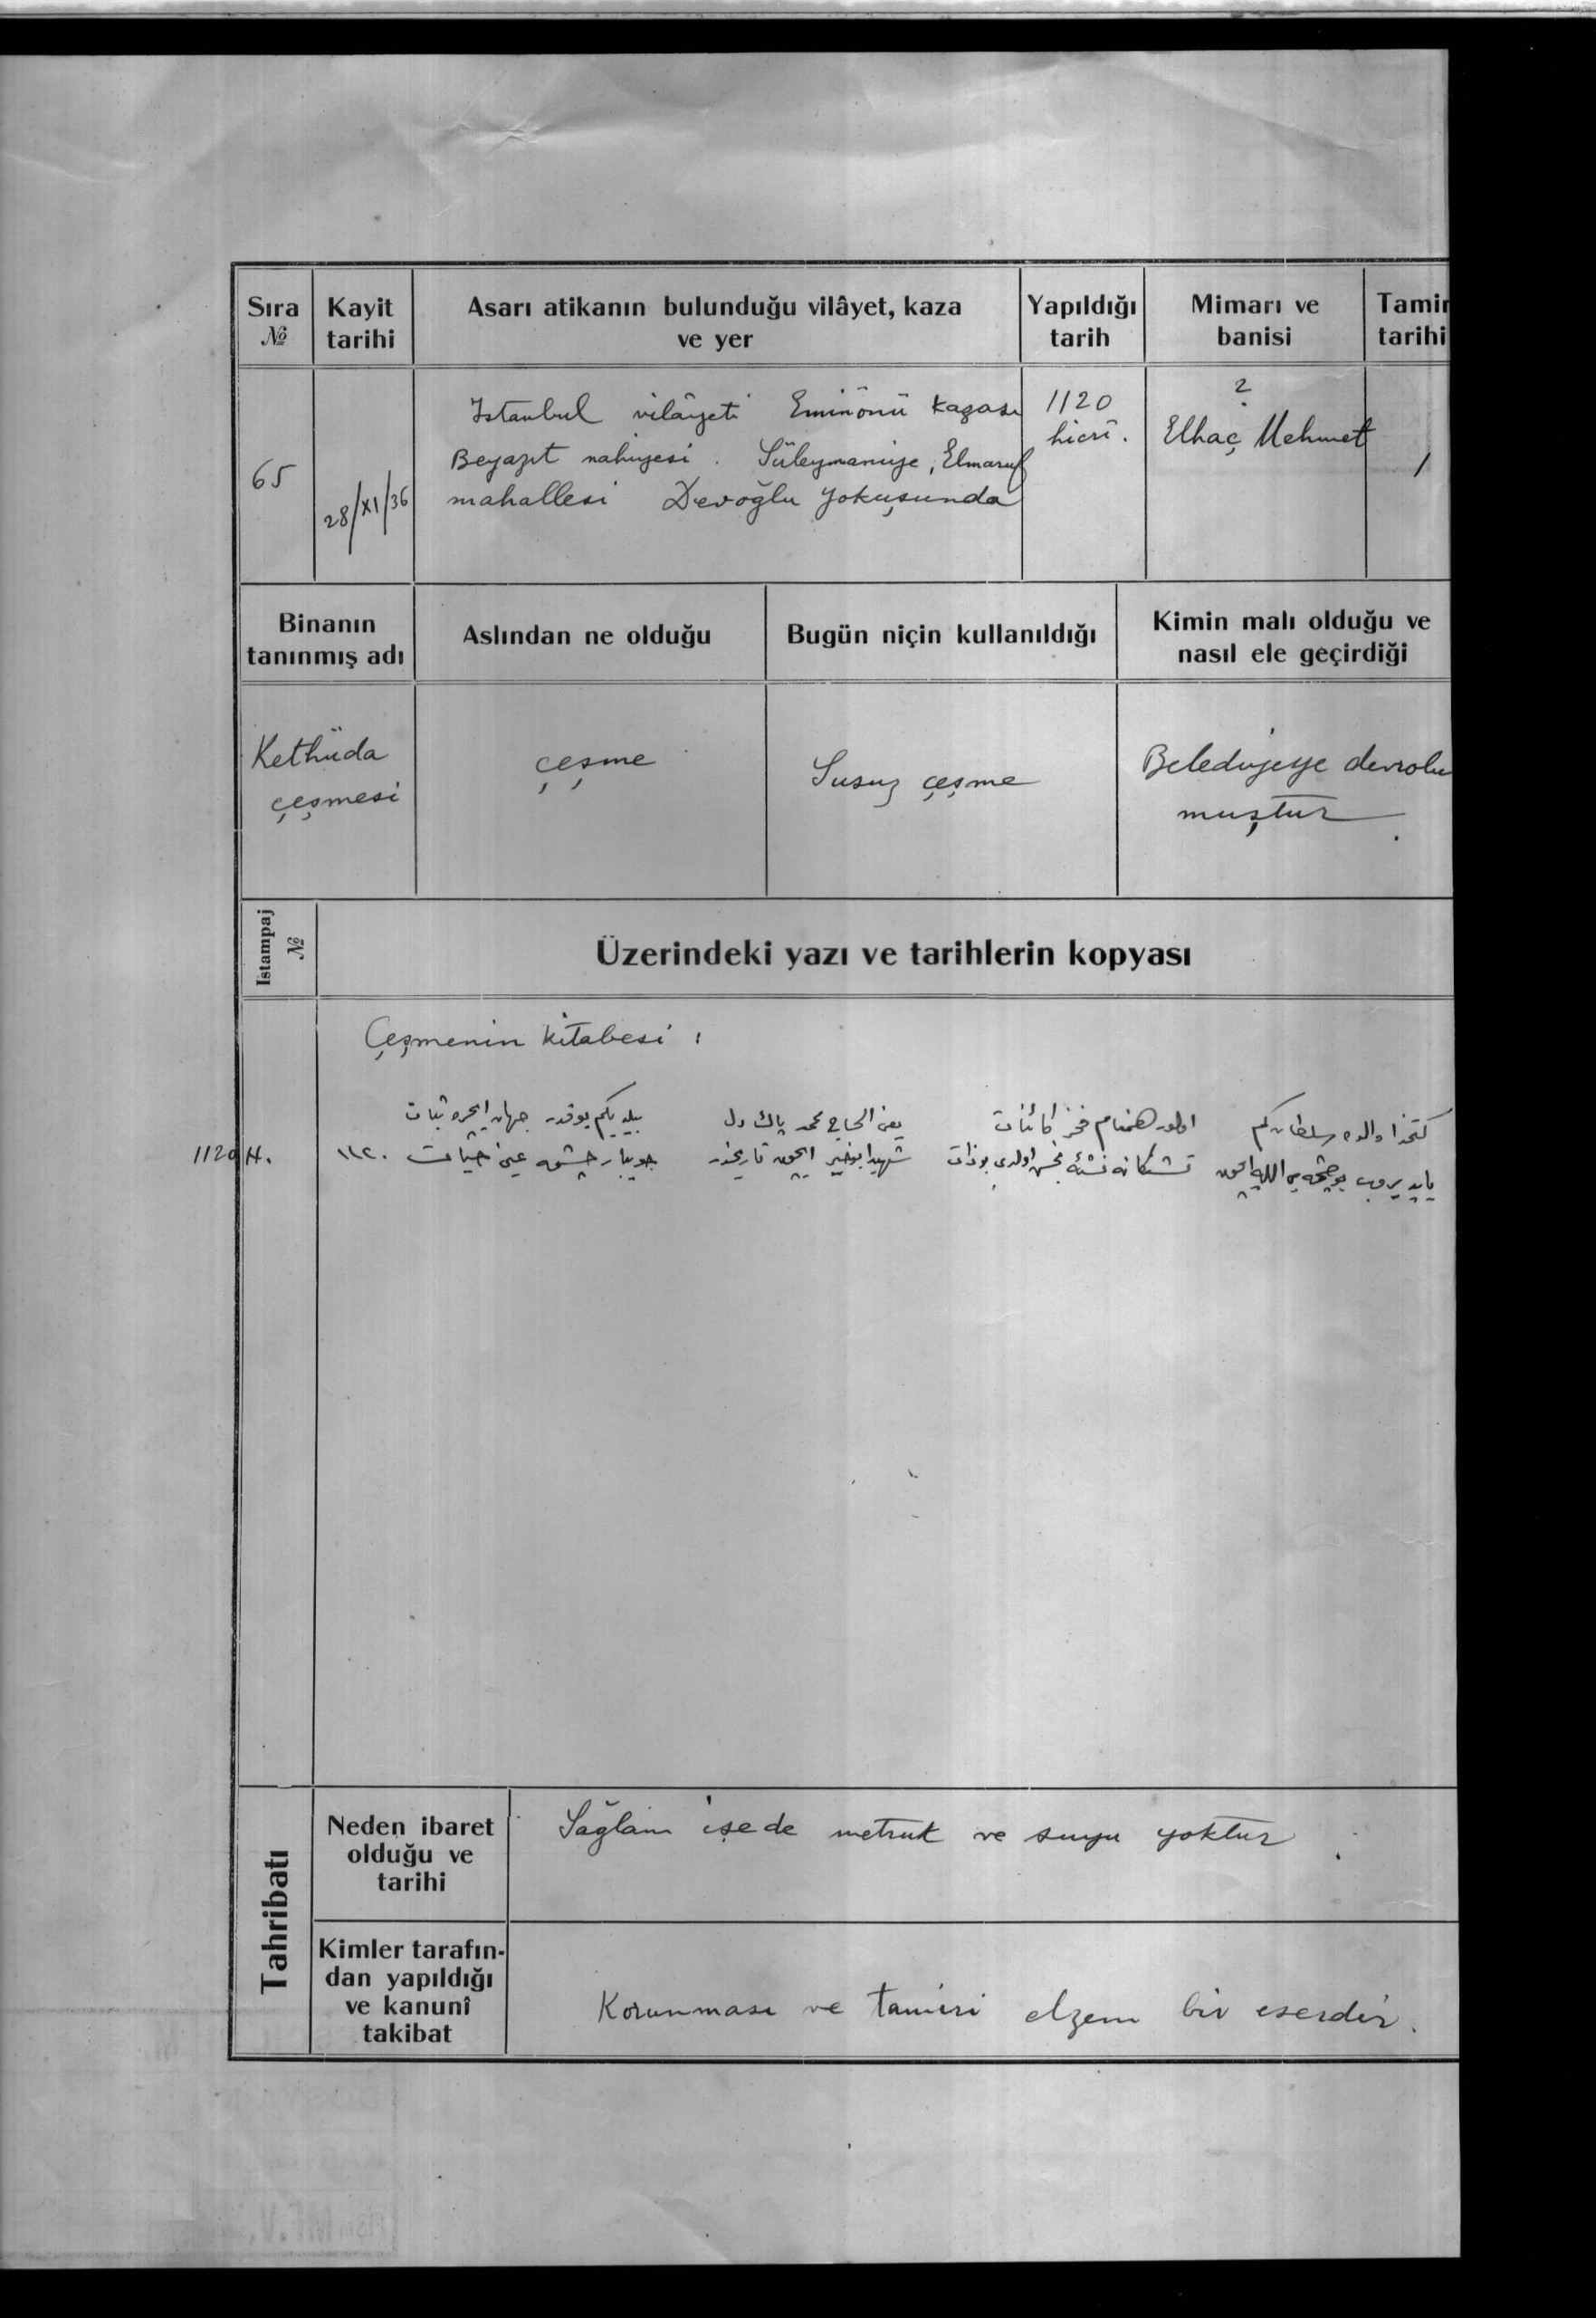 Sıra
№
Kayit
tarihi
Asarı atikanın bulunduğu vilâyet, kaza
ve yer
Yapıldığı
tarih
Mimarı ve
banisi
Tamir
tarihi
65
28/XI/36
Istanbul vilâyeti Eminönü kazası
Beyazıt nahiyesi. Süleymaniye, Elmaruf
mahallesi Devoğlu yokuşunda
1120
hicrî.
?
Elhaç Mehmet
/
Binanın
tanınmış adı
Aslından ne olduğu
Bugün niçin kullanıldığı
Kimin malı olduğu ve
nasıl ele geçirdiği
Kethüda
çeşmesi
çeşme
Susuz çeşme
Belediyeye devrolu
muştur.
İstampaj
№
Üzerindeki yazı ve tarihlerin kopyası
Çeşmenin kitabesi :
كتخدا والده سلطان كم اولور همنام فخر كائنات يعنى الحاج محمد پاك دل بيلديكم يوقدر جهان ايچره ثبات
تشنكانه اولدى بو ذات ايچون تاريخدر جويبار چشمه عين حيات ١١٢٠
1120 H.
Tahribatı
Neden ibaret
olduğu ve
tarihi
Sağlam isede metruk ve suyu yoktur.
Kimler tarafın-
dan yapıldığı
ve kanunî
takibat
Korunması ve tamiri elzem bir eserdir.